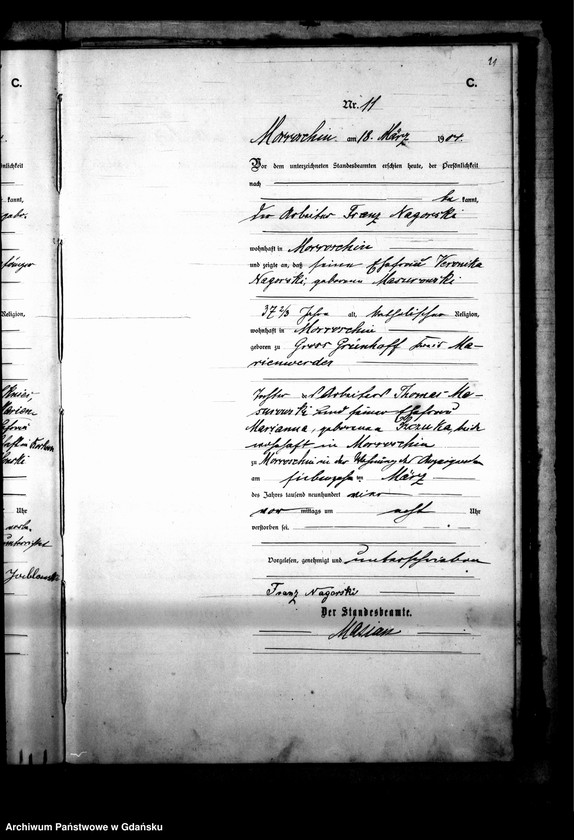 C.
21
C.
Nr. 11
Morroschin am 18. März 1904.
Vor dem unterzeichneten Standesbeamten erschien heute, der Persönlichkeit
nach
be kannt,
der Arbeiter Franz Nagorski
wohnhaft in Morroschin
und zeigte an, daß seine Ehefrau Veronika
Nagorski, geborene Masurowski
37 2/3 Jahre alt, katholischer Religion,
wohnhaft in Morroschin
geboren zu Gross Grünhoff Kreis Ma-
rienwerder
Tochter des Arbeiters Thomas Ma-
surowski und seiner Ehefrau
Marianna, geborenen beide
wohnhaft in Morroschin
zu Morroschin in der Wohnung des Anzeigenden
am siebenzehnten März
des Jahres tausend neunhundert vier
vor mittags um acht Uhr
verstorben sei.
Vorgelesen, genehmigt und unterschrieben
Franz Nagorski
Der Standesbeamte.
Archiwum Państwowe w Gdańsku